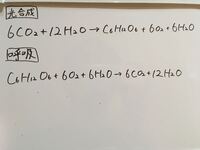 光合成
6CO₂+12H₂O→C₆H₁₂O₆+6O₂+6H₂O
呼吸
C₆H₁₂O₆+6O₂+6H₂O→6CO₂+12H₂O